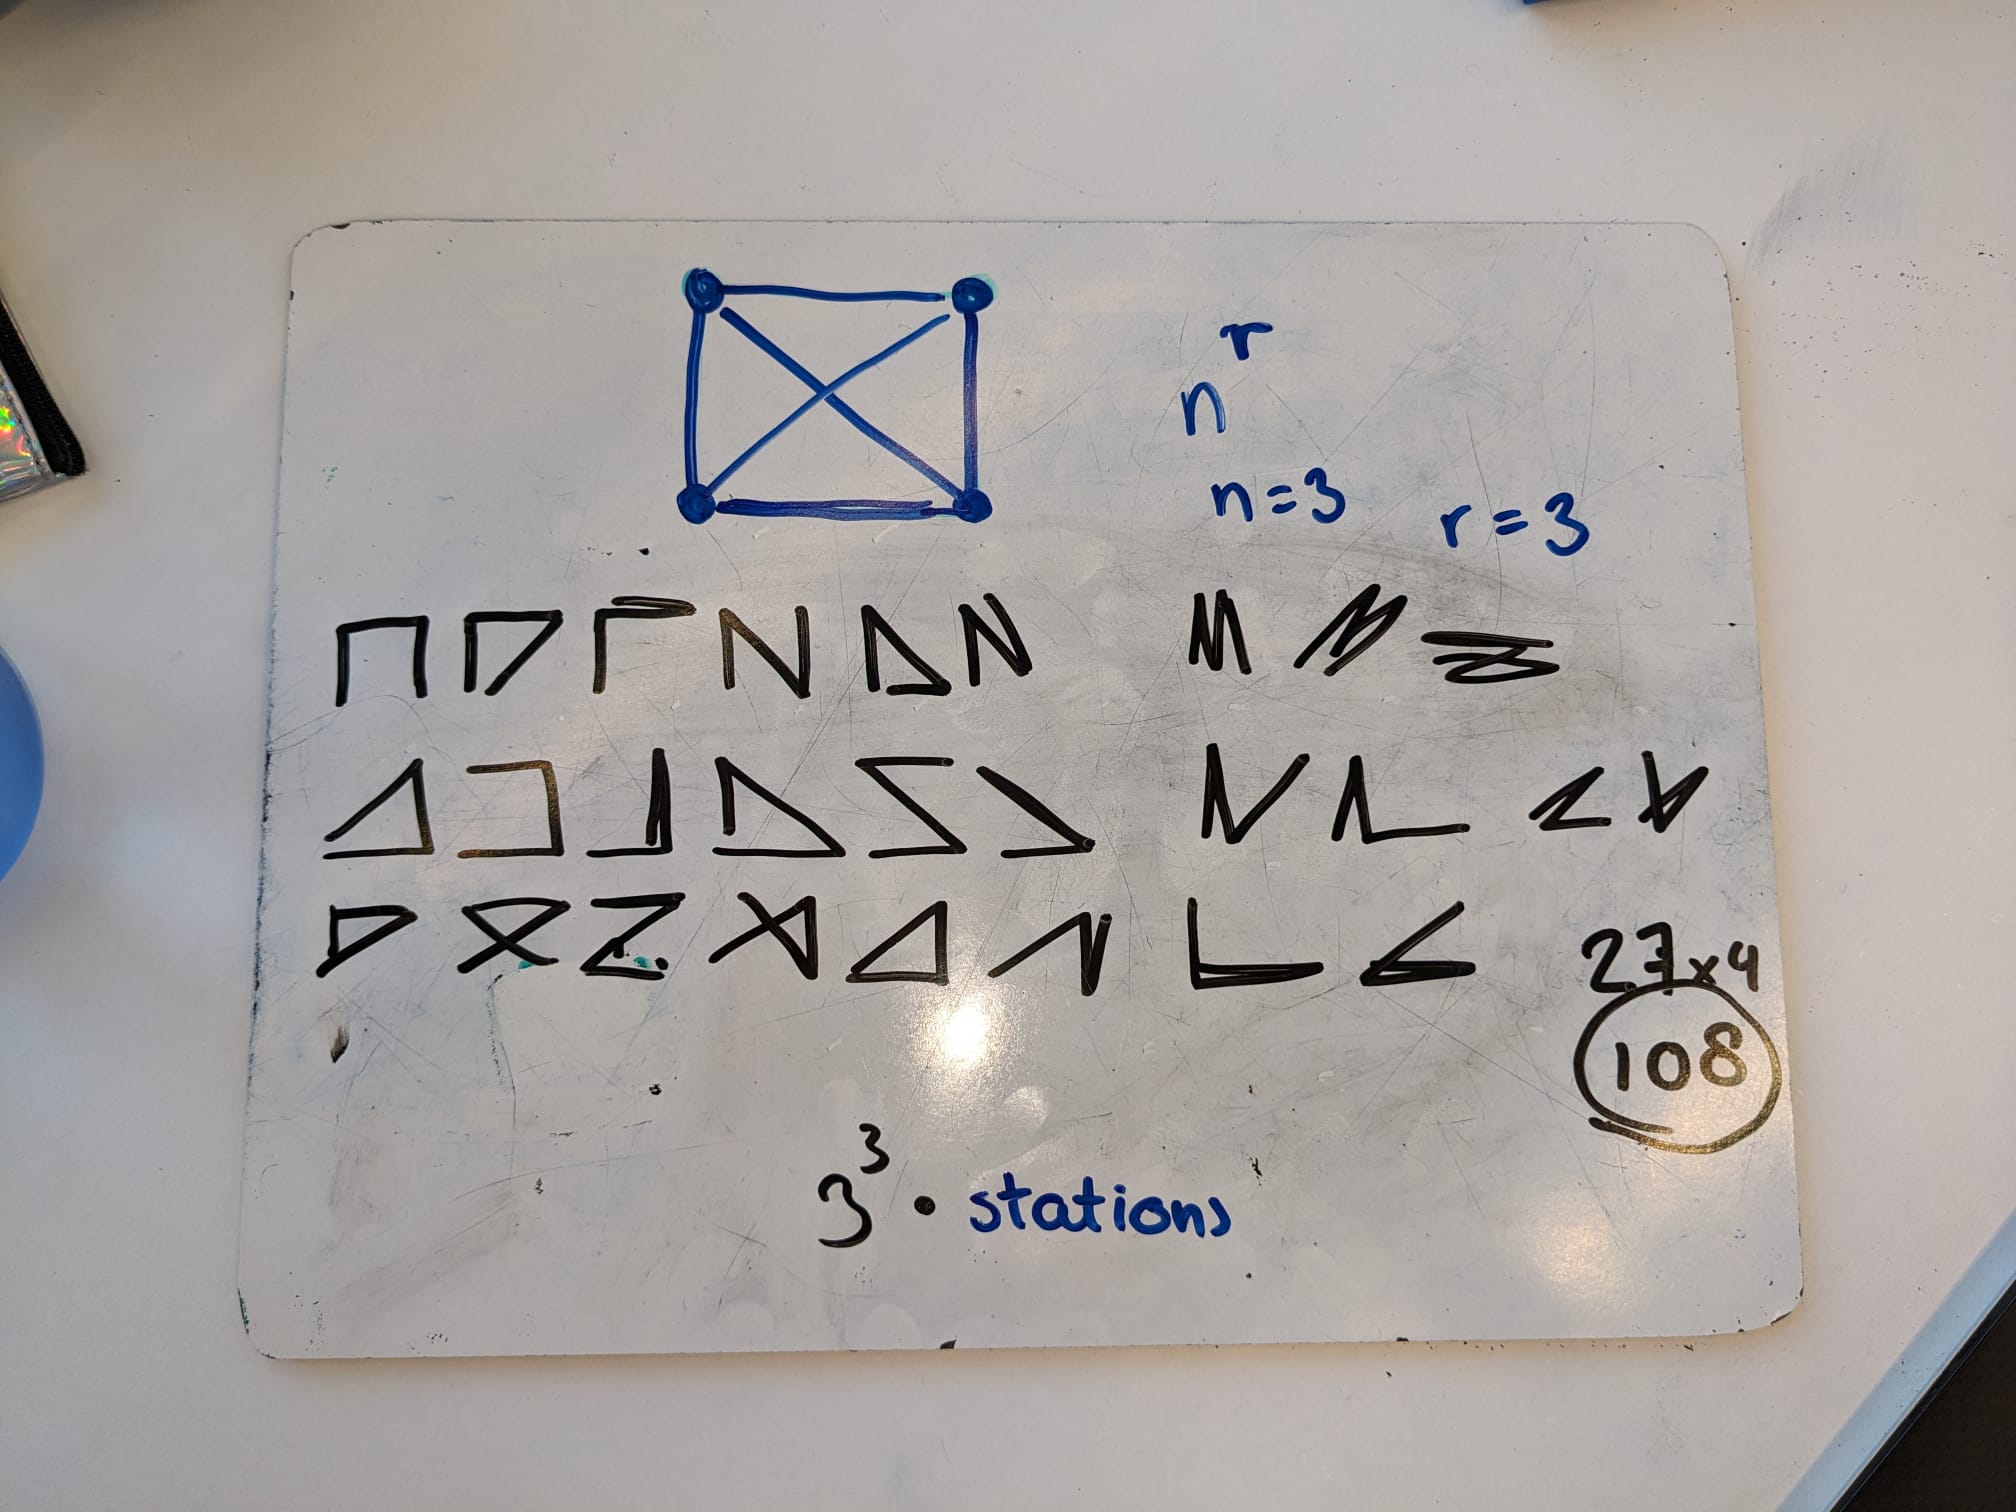 nʳ
n=3 r=3
27x4
108
3³ • stations